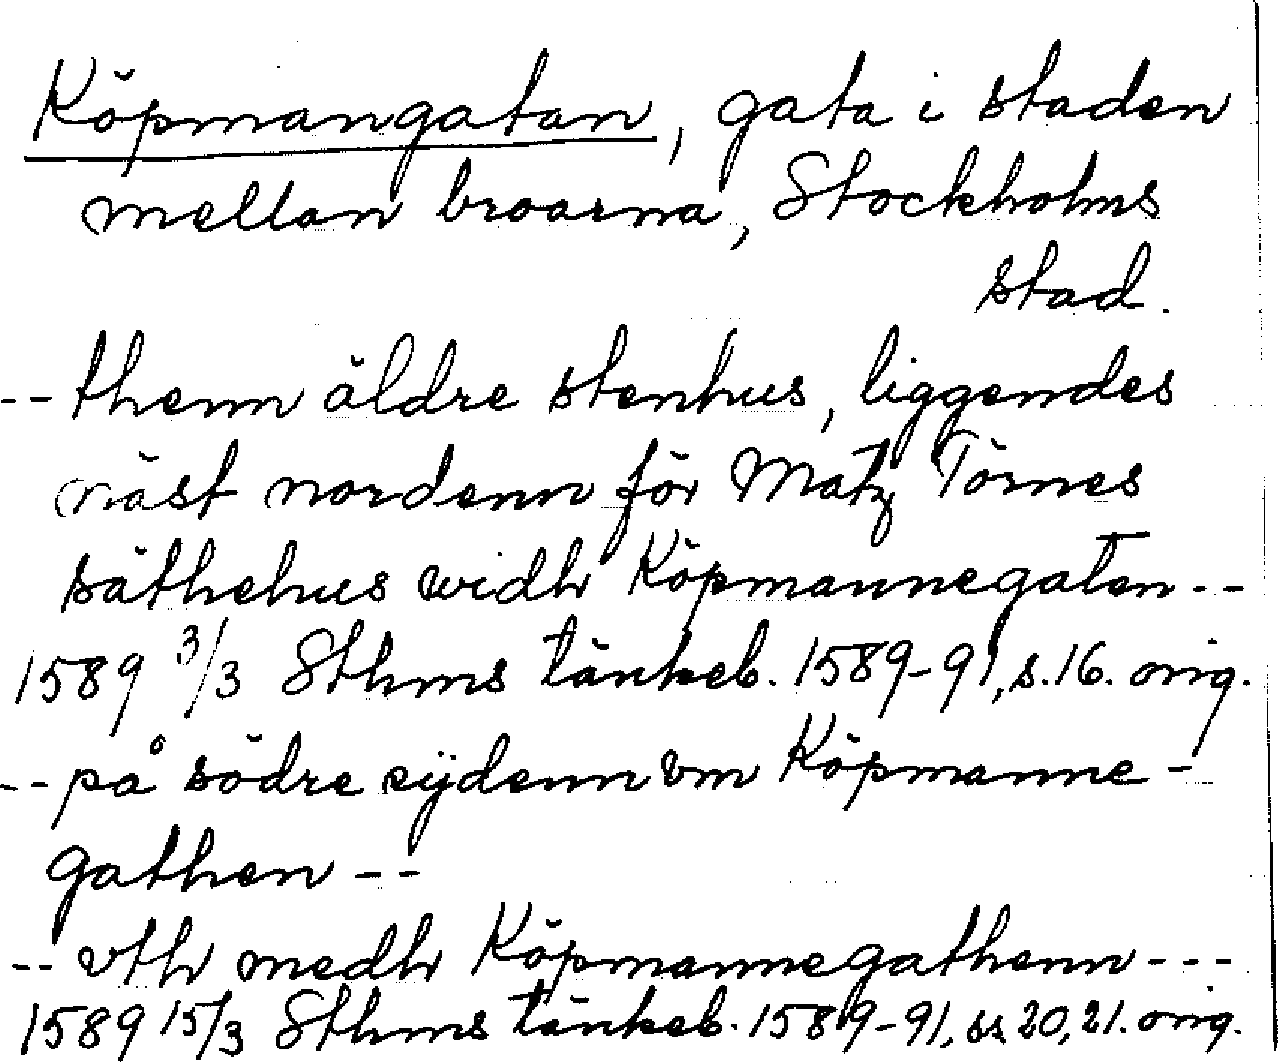 Köpmangatan, gata i staden
mellan broarna, Stockholms
stad.
-- thenn äldre stenhus, liggendes
näst nordenn för Matz Törnes
säthehus widh Köpmannegaten --
1589 3/3 Sthms tänkeb. 1589-91, s. 16. orig.
-- på södre sÿdenn vm Köpmanne-
gathen --
-- vth medh Köpmannegathenn ---
1589 15/3 Sthms tänkeb. 1589-91, ss 20, 21. orig.